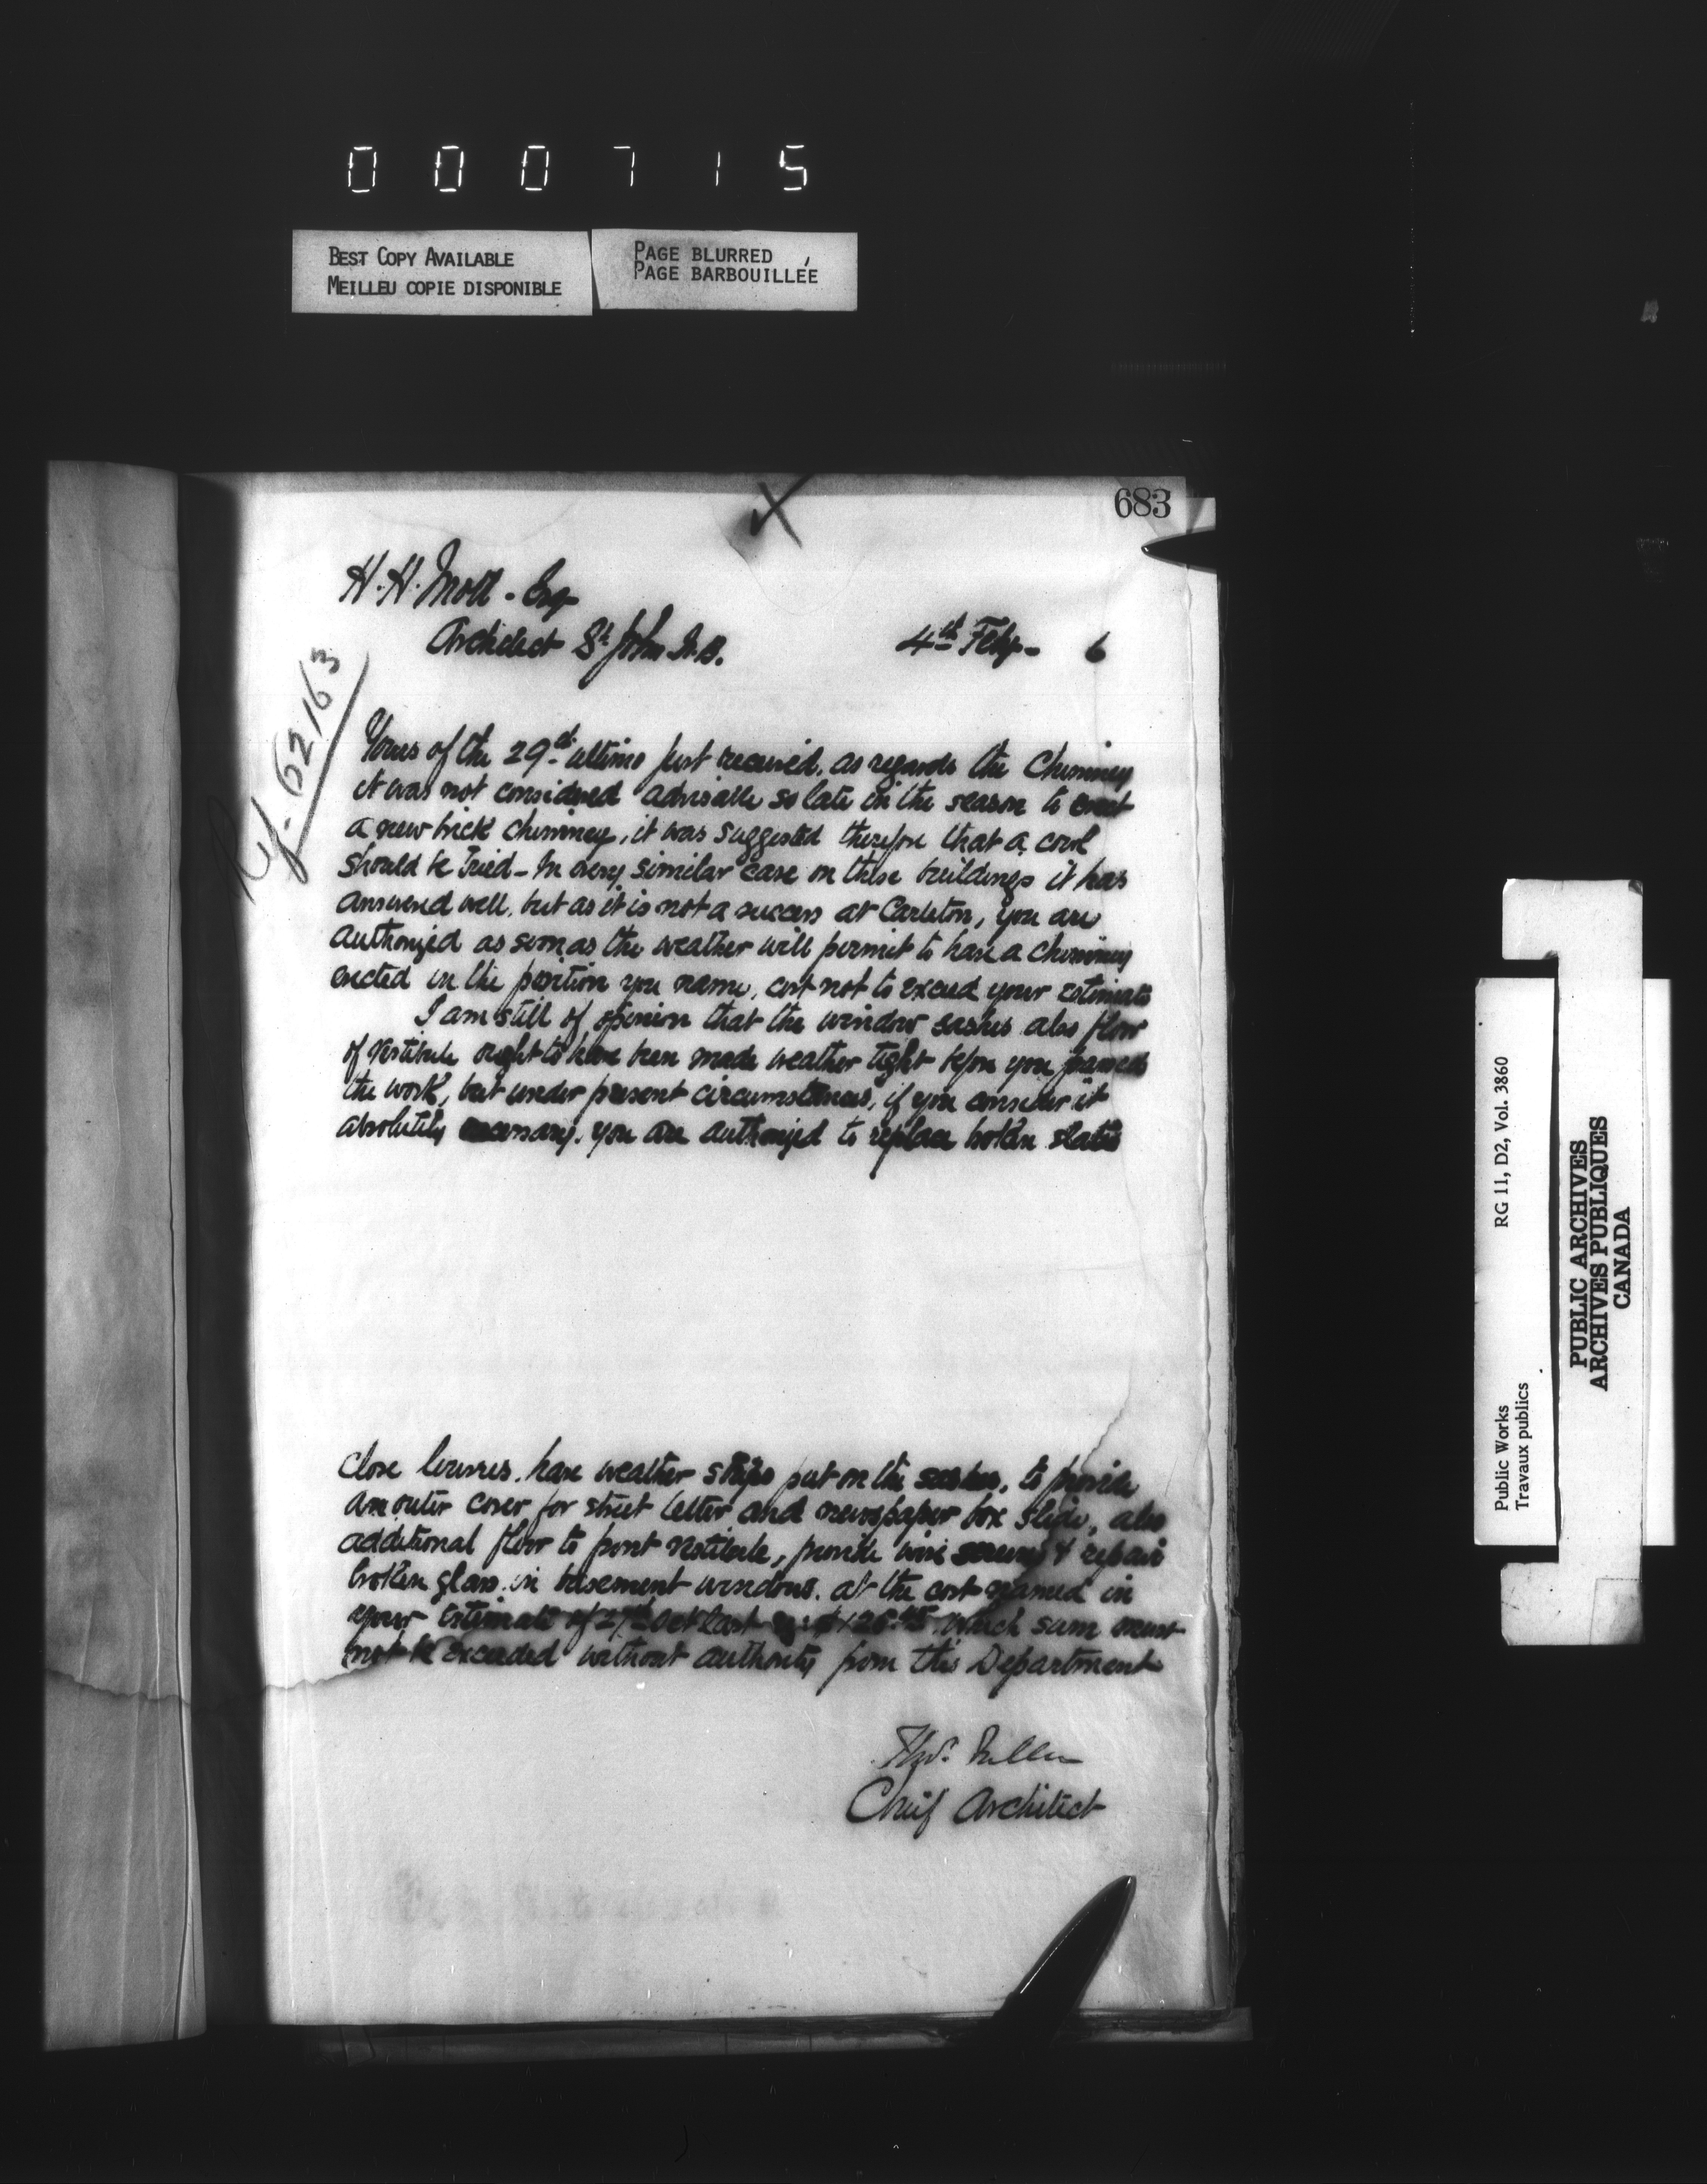 000715
BEST COPY AVAILABLE
MEILLEU COPIE DISPONIBLE
PAGE BLURRED
PAGE BARBOUILLÉE
683
H. H. Mott. Esq
Architect St John N.B.
4th Feby. 6
Rf. 62163
Yours of the 29th ultimo just received. as regards the Chimney
it was not considered advisable so late in the season to erect
a new brick chimney, it was suggested therefore that a cowl
should be tried - In every similar case on these buildings it has
answered well, but as it is not a success at Carleton, you are
authorized as soon as the weather will permit to have a chimney
erected in the position you name, cost not to exceed your estimate
I am still of opinion that the window sashes also floor
of vestibule ought to have been made weather tight before you passed
the work, but under present circumstances, if you consider it
absolutely necessary, you are authorized to replace broken slates
close louvres. have weather strips put on the sashes, to provide
an outer cover for street letter and newspaper box slide, also
additional floor to front vestibule, provide wire screens & repair
broken glass in basement windows. at the cost named in
your Estimate of 27th Oct last $126.45 which sum must
not be exceeded without authority from this Department
Thos. Fuller
Chief Architect
Public Works
Travaux publics
RG 11, D2, Vol. 3860
PUBLIC ARCHIVES
ARCHIVES PUBLIQUES
CANADA